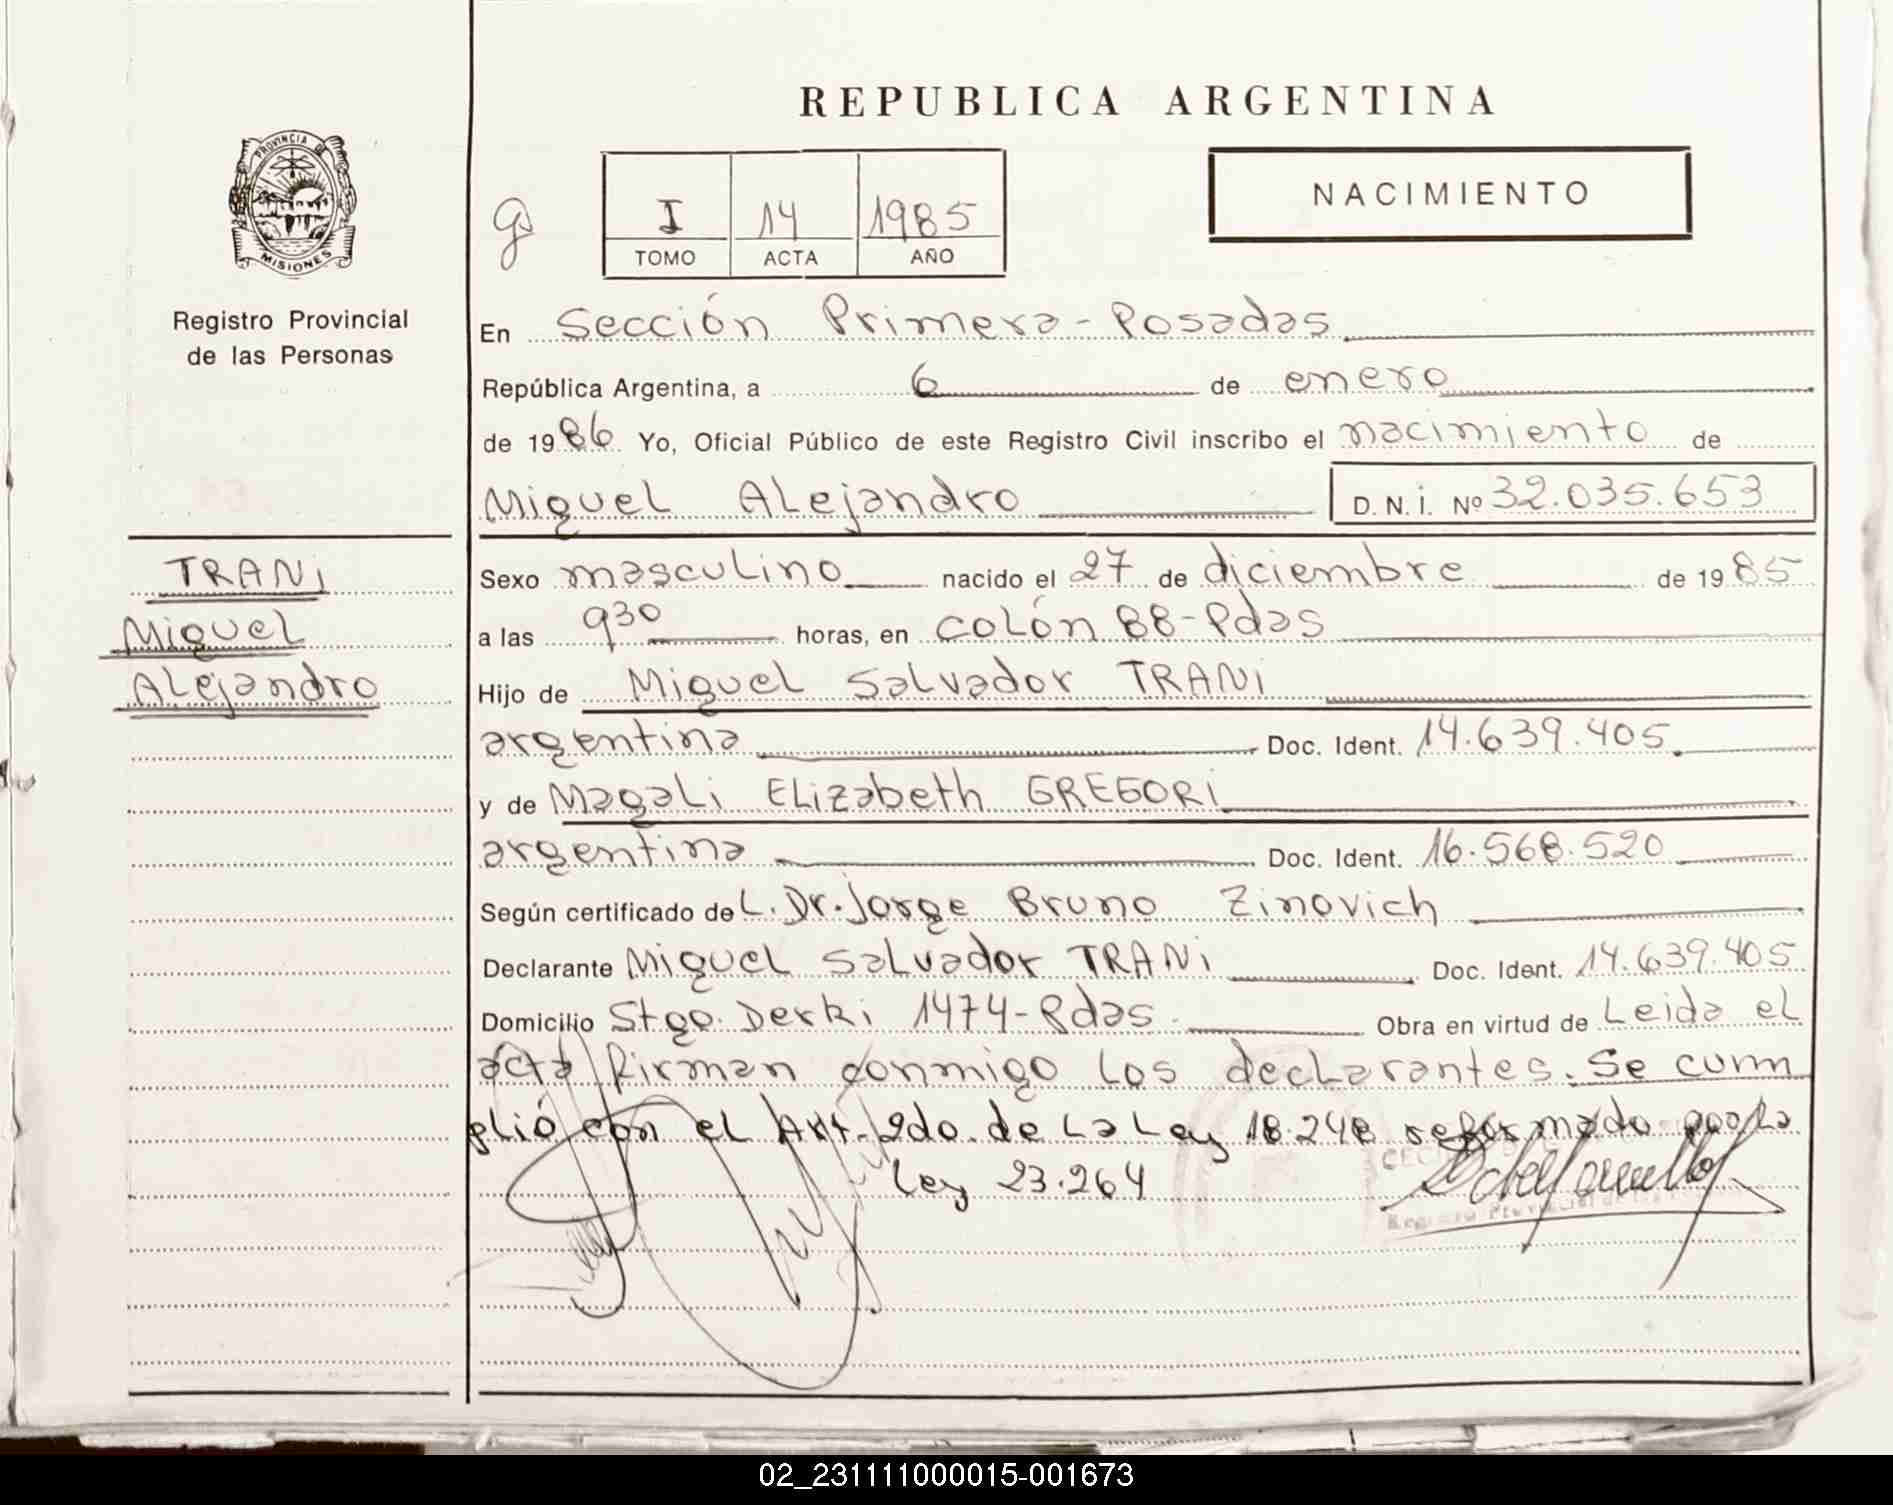 REPUBLICA ARGENTINA
PROVINCIA DE
MISIONES
Registro Provincial
de las Personas
I 14 1985
TOMO ACTA AÑO
NACIMIENTO
En Sección Primera - Posadas
República Argentina, a 6 de enero
de 1986 Yo, Oficial Público de este Registro Civil inscribo el nacimiento de
Miguel Alejandro D.N.I. Nº 32.035.653
TRANI
Miguel
Alejandro
Sexo masculino nacido el 27 de diciembre de 1985
a las 930 horas, en Colón 88 - Pdas
Hijo de Miguel Salvador TRANI
argentina Doc. Ident. 14.639.405
y de Magali Elizabeth GREGORI
argentina Doc. Ident. 16.568.520
Según certificado de L. Dr. Jorge Bruno Zinovich
Declarante Miguel Salvador TRANI Doc. Ident. 14.639.405
Domicilio Stgo. Derki 1474 - Pdas. Obra en virtud de Leida el
acta firman conmigo los declarantes. Se cum
plió con el Art. 2do. de la Ley 18.248 reformado por la
Ley 23.264
02_231111000015-001673